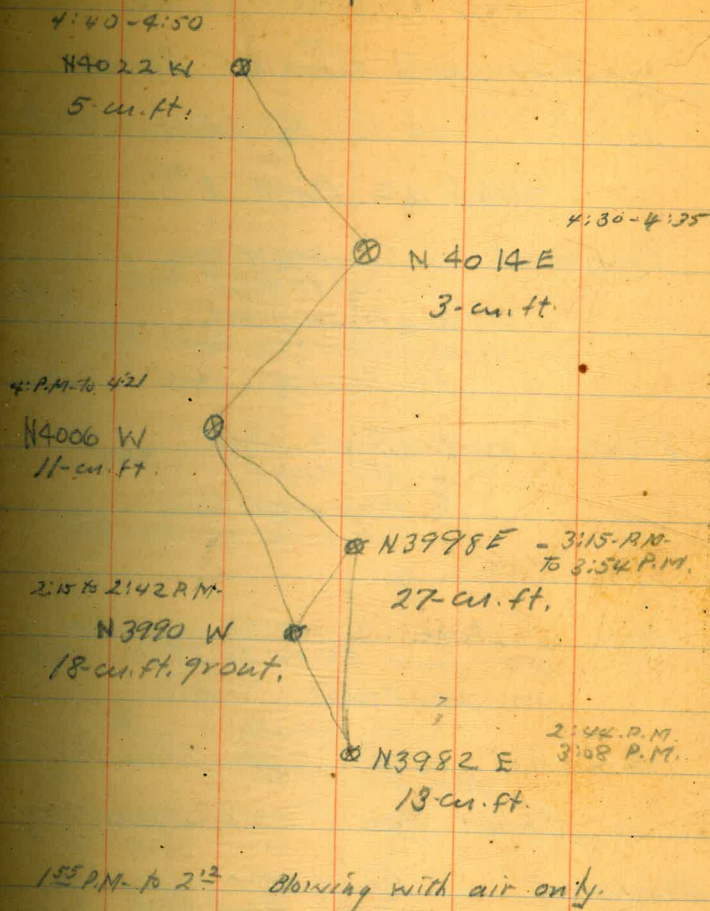 4:40-4:50
N4022 W
5-cu.ft.
4:30-4:35
N 4014 E
3-cu.ft.
4: P.M. to 4:21
N4006 W
11-cu.ft.
N3998E - 3:15-P.M.
to 3:54 P.M.
27-cu.ft.
2:15 to 2:42 P.M.
N 3990 W
18-cu.ft. grout.
2:44 P.M.
N3982 E 3:08 P.M.
13-cu.ft.
1 55 P.M. to 2 12 Blowing with air only.